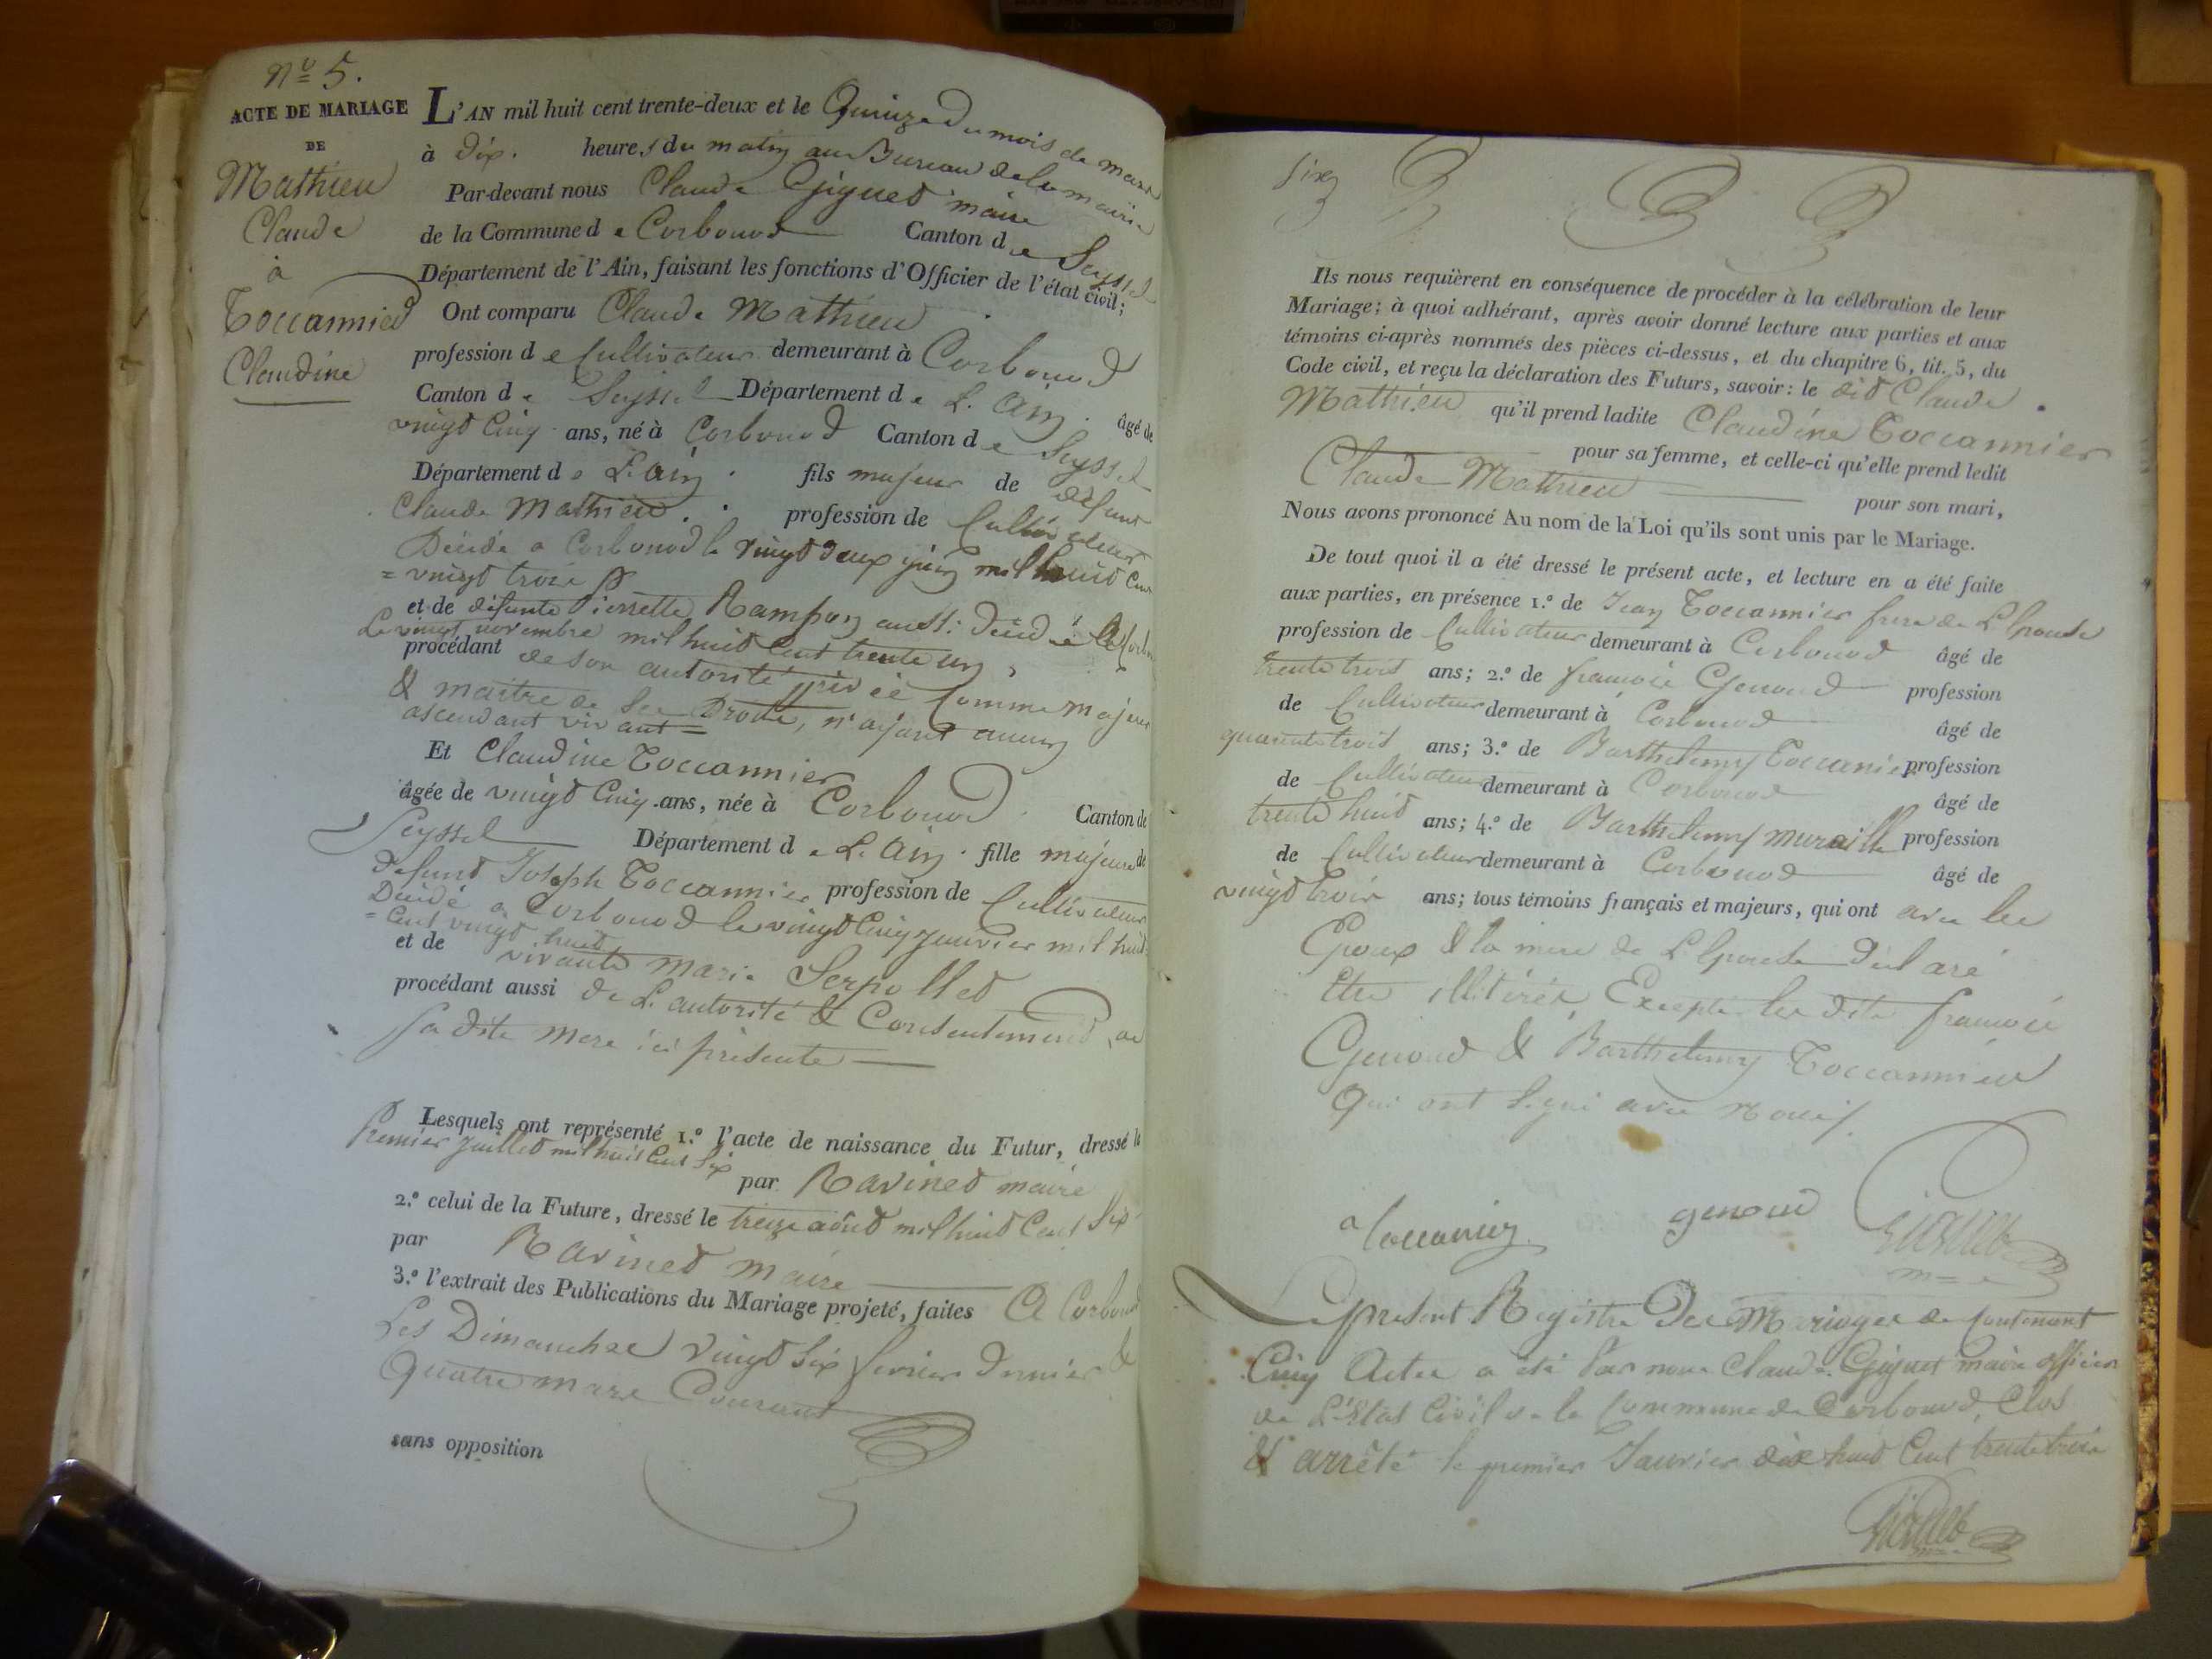 N.º 5.
ACTE DE MARIAGE
DE
Mathieu
Claude
à
Toccannied
Claudine
L'AN mil huit cent trente-deux et le Quinze du mois de mars
à dix. heures du matin au Bureau de la mairie
Par-devant nous Claude Giguet maire
de la Commune de Corbonod Canton de Seyssel
Département de l'Ain, faisant les fonctions d'Officier de l'état civil;
Ont comparu Claude Mathieu
profession de Cultivateur demeurant à Corbonod
Canton de Seyssel Département de L'Ain. âgé de
vingt Cinq ans, né à Corbonod Canton de Seyssel
Département de L'ain. fils majeur de défunt
Claude Mathieu. profession de Cultivateur
Décédé a Corbonod le vingt deux juin mil huit Cent
= vingt trois
et de défunte Pierrette Rampon aussi décédé A Corbo
Le vingt novembre mil huit Cent trente un,
procédant de son autorité privée Comme majeur
& maitre de ses Droits, n'ayant aucun
ascendant vivant =
Et Claudine Toccannier
âgée de vingt Cinq ans, née à Corbonod. Canton de
Seyssel Département de L'Ain. fille majeure de
defunt Joseph Toccannier profession de Cultivateur
Décédé a Corbonod le vingt Cinq janvier mil huit
= Cent vingt huit
et de vivante Marie Serpollet
procédant aussi de L'autorité & Consentement de
sa dite mere ici présente
Lesquels ont représenté 1.º l'acte de naissance du Futur, dressé le
Premier Juillet mil huit Cent Six
par Ravinet maire
2.º celui de la Future, dressé le treize août mil huit Cent Six
par Ravinet maire
3.º l'extrait des Publications du Mariage projeté, faites A Corbonod
Les Dimanches vingt Six fevrier dernier &
Quatre mars Courant
sans opposition
six
Ils nous requièrent en conséquence de procéder à la célébration de leur
Mariage; à quoi adhérant, après avoir donné lecture aux parties et aux
témoins ci-après nommés des pièces ci-dessus, et du chapitre 6, tit. 5, du
Code civil, et reçu la déclaration des Futurs, savoir: le dit Claude
Mathieu qu'il prend ladite Claudine Toccannier
pour sa femme, et celle-ci qu'elle prend ledit
Claude Mathieu pour son mari,
Nous avons prononcé Au nom de la Loi qu'ils sont unis par le Mariage.
De tout quoi il a été dressé le présent acte, et lecture en a été faite
aux parties, en présence 1.º de Jean Toccannier frere de L'Epouse
profession de Cultivateur demeurant à Corbonod âgé de
trente trois ans; 2.º de francois Genoud profession
de Cultivateur demeurant à Corbonod âgé de
quarante trois ans; 3.º de Barthelemy Toccannier profession
de Cultivateur demeurant à Corbonod âgé de
trente huit ans; 4.º de Barthelemy muraille profession
de Cultivateur demeurant à Corbonod âgé de
vingt trois ans; tous témoins français et majeurs, qui ont avec les
Epoux & la mere de L'Epouse Déclaré
Etre illitérés, Excepté les dits francois
Genoud & Barthelemy Toccannier
Qui ont Signé avec Nous.
Toccanier
genoud
Giguet
m=e
Le present Registre Des Mariages de Contenant
Cinq Actes a été Par nous Claude Giguet maire officier
de L'Etat Civil de la Commune de Corbonod, Clos
& arrêté le premier Janvier dix huit Cent trente trois
Giguet